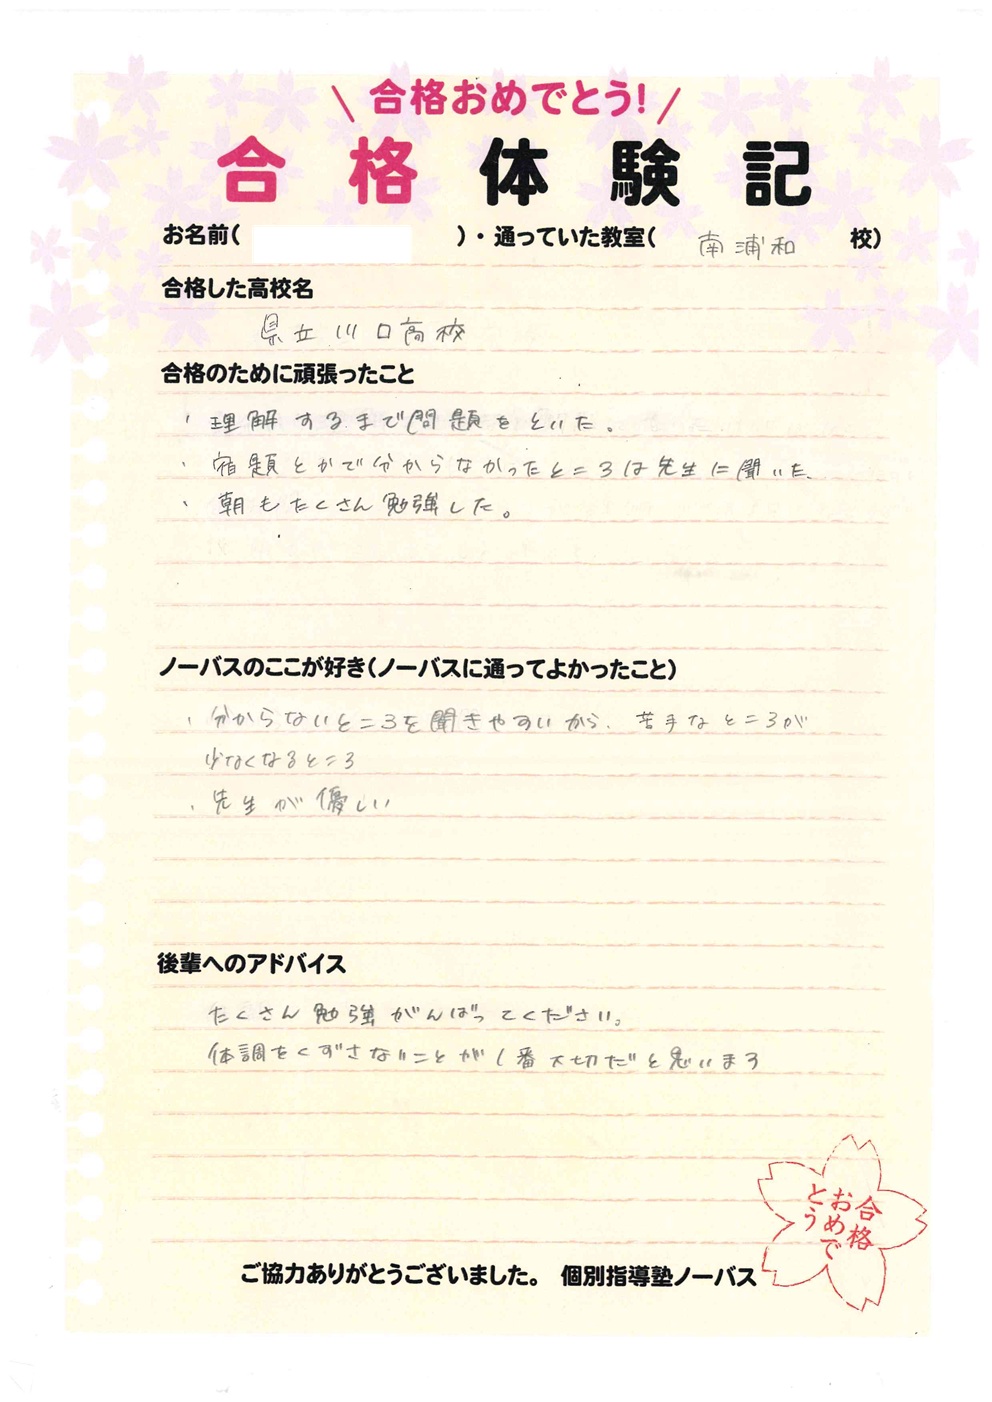 合格おめでとう!
合格体験記
お名前( )・通っていた教室( 南浦和 校)
合格した高校名
県立川口高校
合格のために頑張ったこと
・理解するまで問題をといた。
・宿題とかで分からなかったところは先生に聞いた。
・朝もたくさん勉強した。
ノーバスのここが好き(ノーバスに通ってよかったこと)
・分からないところを聞きやすいから、苦手なところが
少なくなるところ
・先生が優しい
後輩へのアドバイス
たくさん勉強がんばってください。
体調をくずさないことが1番大切だと思います
合格
おめで
とう
ご協力ありがとうございました。 個別指導塾ノーバス